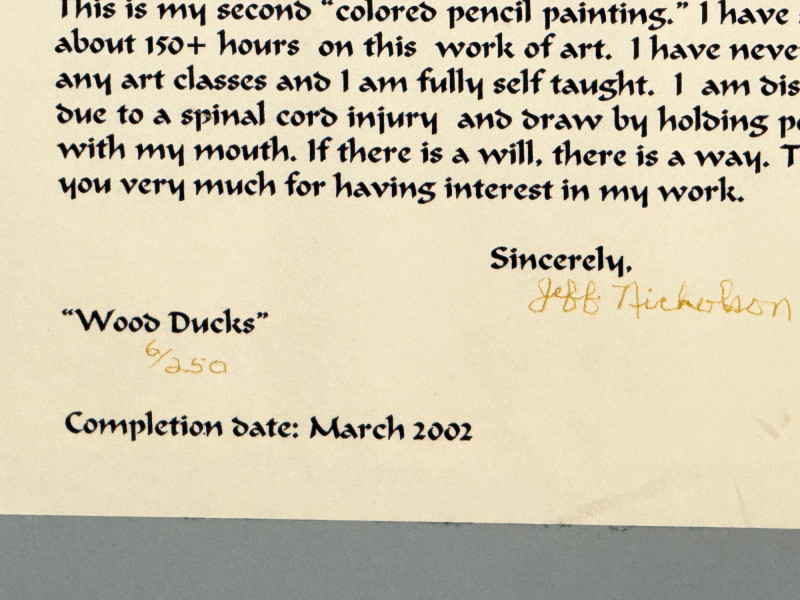 This is my second “colored pencil painting.” I have
about 150+ hours on this work of art. I have neve
any art classes and I am fully self taught. I am dis
due to a spinal cord injury and draw by holding pe
with my mouth. If there is a will, there is a way. T
you very much for having interest in my work.
Sincerely,
Jeff Nicholson
“Wood Ducks”
6/250
Completion date: March 2002